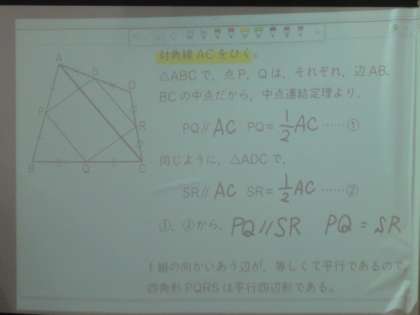 対角線ACをひく。
△ABCで、点P、Qは、それぞれ、辺AB、
BCの中点だから、中点連結定理より、
PQ // AC PQ = 1/2 AC ……①
同じように、△ADCで、
SR // AC SR = 1/2 AC ……②
①、②から、PQ // SR PQ = SR
1組の向かいあう辺が、等しくて平行であるので、
四角形PQRSは平行四辺形である。
A
S
D
P
R
B
Q
C